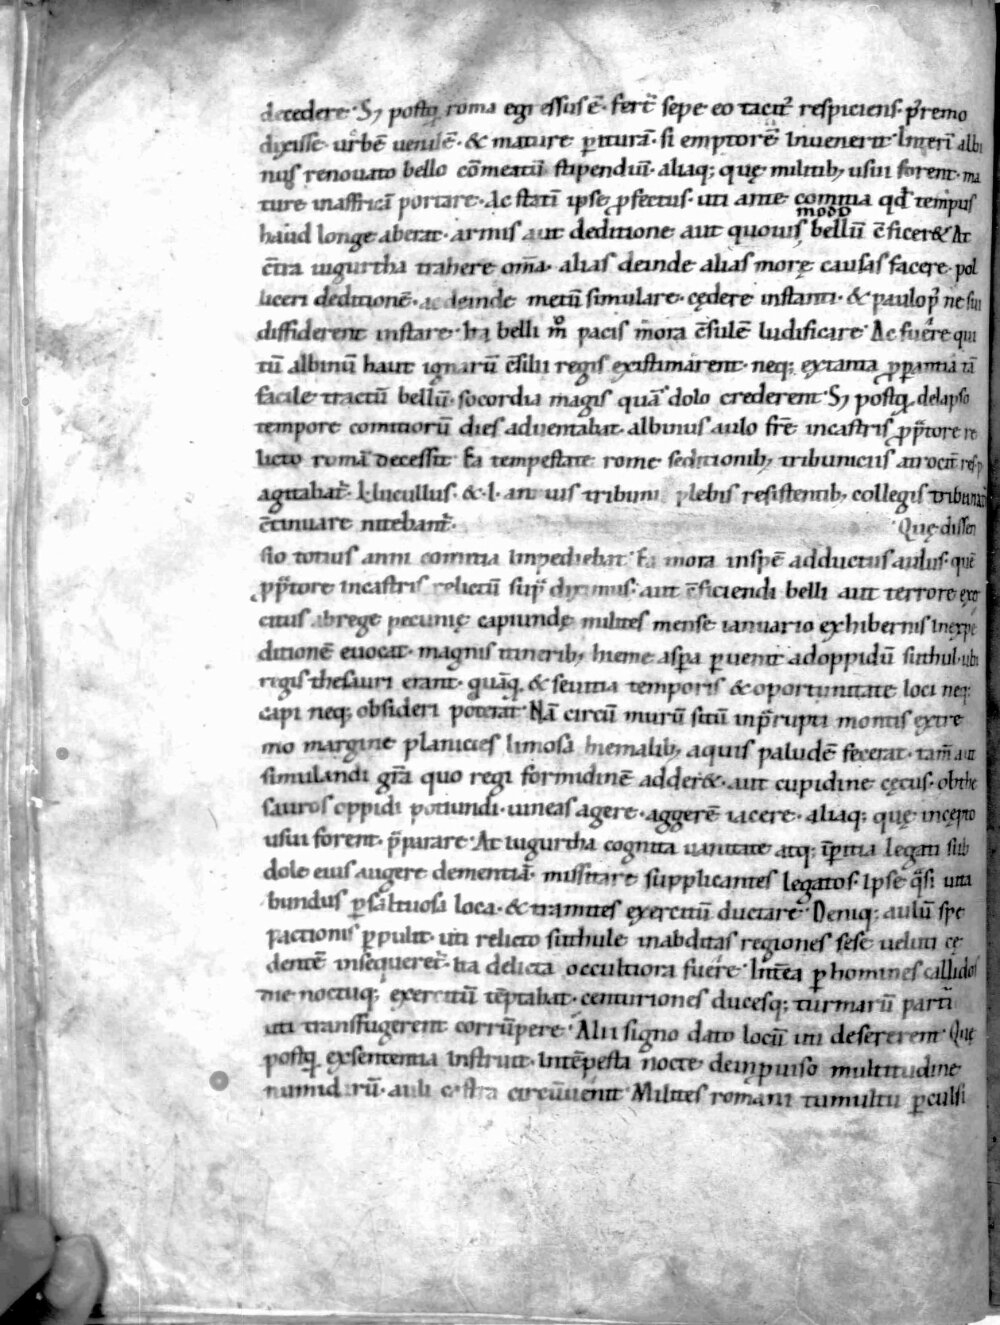 decedere · Sꝫ postꝗ roma egressus ē · fert᷑ sepe eo tacit᷒ respiciens · p̄remo
dixisse · urbē uenalē · & mature ꝑiturā · si emptorē inuenerit · Interī albi
nus renouato bello cōmeatū stipendiū · aliaq; quę militibꝫ usui forent · ma
ture inaffricā portare · Ac statī ipse ꝓfectus · uti ante comitia qd̄ tempus
modo
haud longe aberat · armis aut deditione aut quouis bellū c̄ficer& · At
c̄tra iugurtha trahere om̄a · alias deinde alias morę causas facere · pol
liceri deditionē · ac deinde metū simulare · cędere instanti · & paulop᷒ ne sui
diffiderent instare · Ita belli m̊ pacis mora c̄sulē ludificare · Ac fuere qui
tū albinū haut ignarū c̄silii regis existimarent · neq; extanta ꝓꝑantia tā
facile tractū bellū · socordia magis quā dolo crederent · Sꝫ postꝗ delapso
tempore comitiorū dies aduentabat · albinus aulo fr̄e incastris ꝓp̄tore re
licto romā decessit · Ea tempestate rome seditionibꝫ tribuniciis atrocit᷑ resp
agitabat᷑ · l · lucullus · & · l · an uis tribuni plebis resistentibꝫ collegis
c̄tinuare nitebant᷑ · Quę dissen
sio totius anni comitia impediebat · Ea mora inspē adductus aulus · quē
ꝓp̄tore incastris relictū sup᷑ diximus · aut c̄ficiendi belli aut terrore exer
citus abrege pecunię capiundę milites mense ianuario exhibernis inexpe
ditionē euocat · magnis itineribꝫ hieme aspa ꝑuenit adoppidū suthul · ubi
regis thesauri erant · quāꝗ & seuitia temporis & oportunitate loci neq;
capi neq; obsideri poterat · Nā circū murū sitū inp̄rupti montis extre
mo margine planicies limosa hiemalibꝫ aquis paludē fecerat · tam̄ aut
simulandi gr̄a quo regi formidinē adder& · aut cupidine cęcus · obthe
sauros oppidi potiundi · uineas agere · aggerē iacere · aliaq; quę incępto
usui forent · p̄parare · At iugurtha cognita uanitate atq; īpitia legati sub
dole eius augere dementiā · missitare supplicantes legatos · Ipse q̄si uita
bundus ꝑsaltuosa loca · & tramites exercitū ductare · Deniq; aulū spe
pactionis ꝑpulit · uti relicto suthule inabditas regiones sese ueluti cę
dentē insequeret᷑ · ita delicta occultiora fuere · Intēa ꝑ homines callidos
die noctuq; exercitū tēptabat · centuriones ducesq; turmarū partī
uti transfugerent corrūpere · Alii signo dato locū uti desererent · Quę
postꝗ exsententia instruit · intēpesta nocte deinpuiso multitudine
numidarū · auli castra circūuenit · Milites romani tumultu ꝑculsi